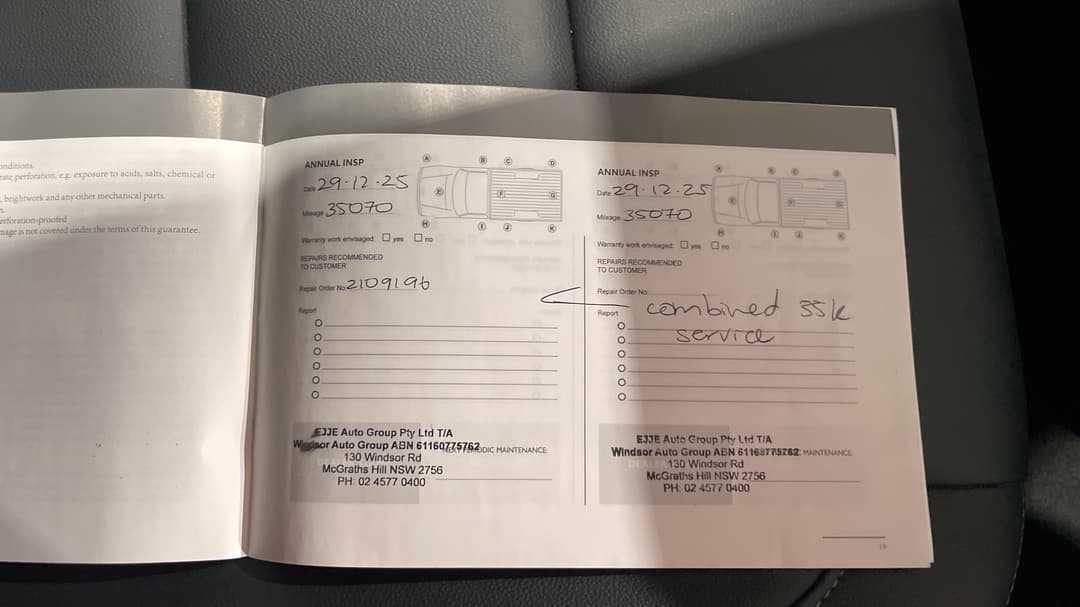 onditions.
rate perforation, e.g. exposure to acids, salts, chemical or
, brightwork and any other mechanical parts.
erforation-proofed
mage is not covered under the terms of this guarantee.
ANNUAL INSP
Date 29-12-25
Mileage 35070
A B C D
E F G
H I J K
Warranty work envisaged: yes no
REPAIRS RECOMMENDED
TO CUSTOMER
Repair Order No 2109196
Report
EJJE Auto Group Pty Ltd T/A
Windsor Auto Group ABN 61160775762
130 Windsor Rd
McGraths Hill NSW 2756
PH: 02 4577 0400
NEXT PERIODIC MAINTENANCE:
ANNUAL INSP
Date 29-12-25
Mileage 35070
A B C D
E F G
H I J K
Warranty work envisaged: yes no
REPAIRS RECOMMENDED
TO CUSTOMER
Repair Order No
Report
combined 35k
service
EJJE Auto Group Pty Ltd T/A
Windsor Auto Group ABN
MAINTENANCE
DEAL
130 Windsor Rd
McGraths Hill NSW 2756
PH: 02 4577 0400
19